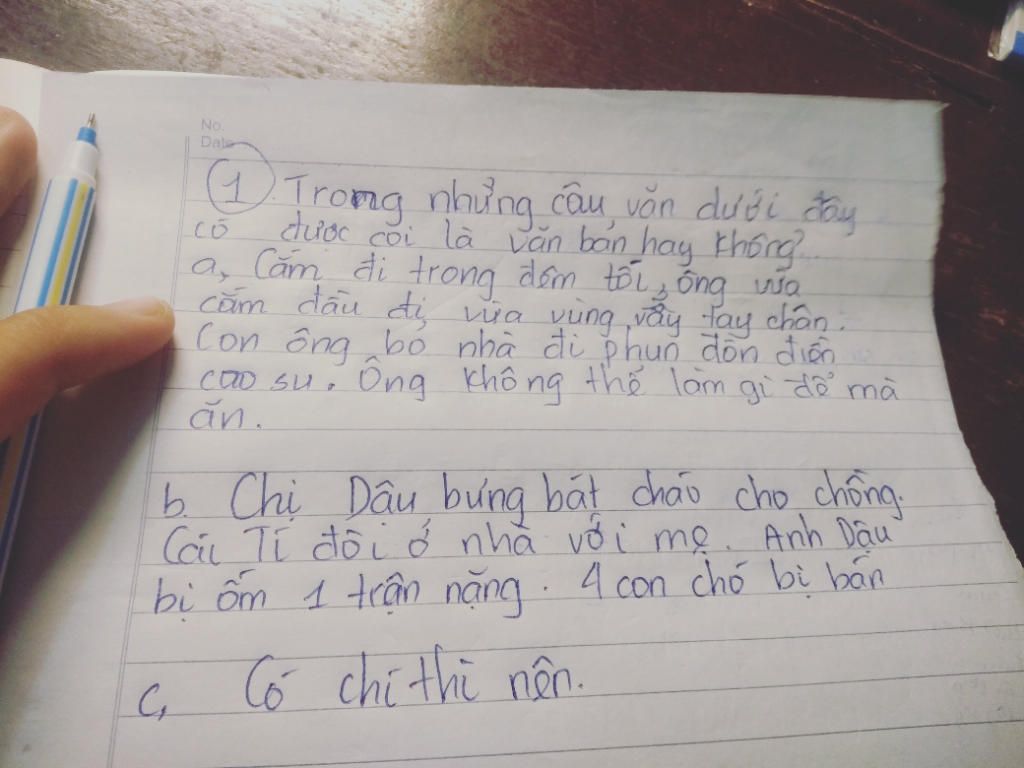 No.
Date
1. Trong những câu văn dưới đây
có được coi là văn bản hay không?
a, Cắm đi trong đêm tối, ông vừa
cắm đầu đi, vừa vùng vẫy tay chân.
Con ông bỏ nhà đi phun đồn điền
cao su. Ông không thể làm gì để mà
ăn.
b. Chị Dậu bưng bát cháo cho chồng.
Cái Tí đòi ở nhà với mẹ. Anh Dậu
bị ốm 1 trận nặng. 4 con chó bị bán
c, Có chí thì nên.